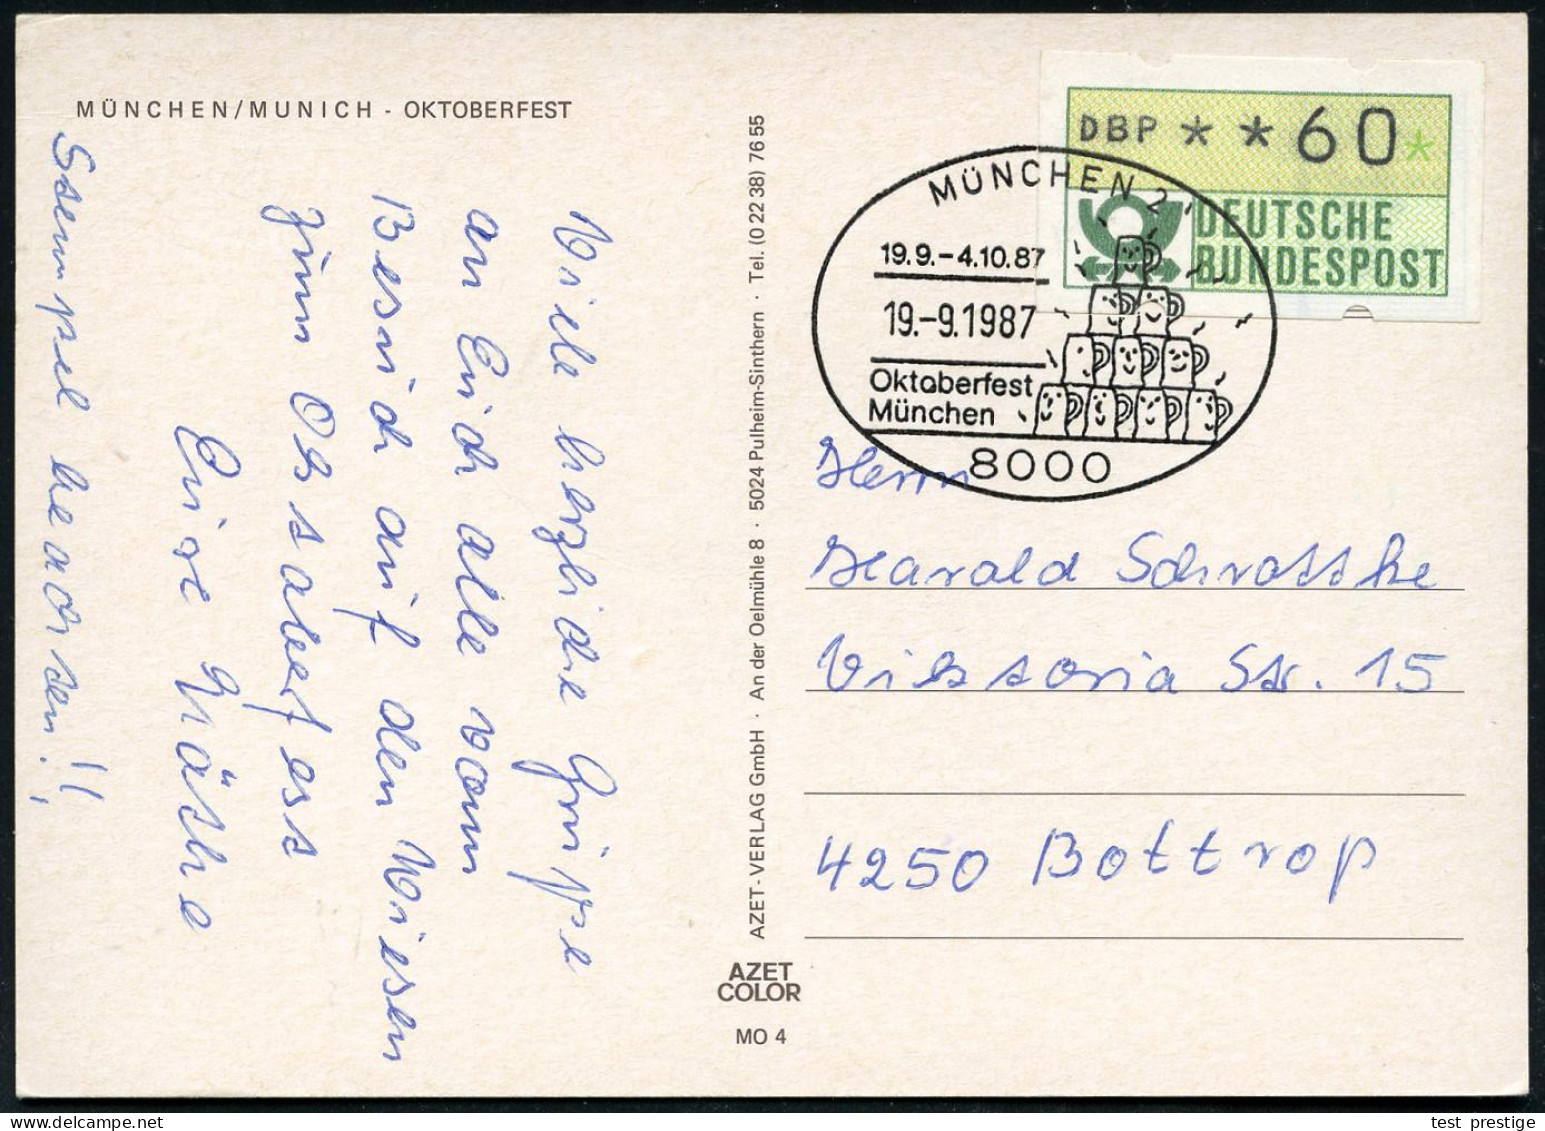 MÜNCHEN/MUNICH - OKTOBERFEST
Viele herzliche Grüße
an Euch alle vom
Besuch auf den Wiesen
zum Oktoberfest
Eure Käthe
Stempel beachten!!
AZET-VERLAG GmbH · An der Oelmühle 8 · 5024 Pulheim-Sinthern · Tel. (0 22 38) 76 55
AZET
COLOR
MO 4
DBP * * 60 *
DEUTSCHE
BUNDESPOST
MÜNCHEN 2
19.9.-4.10.87
19.-9.1987
Oktoberfest
München
8000
Herrn
Harald Schrottke
Viktoria Str. 15
4250 Bottrop
test_prestige